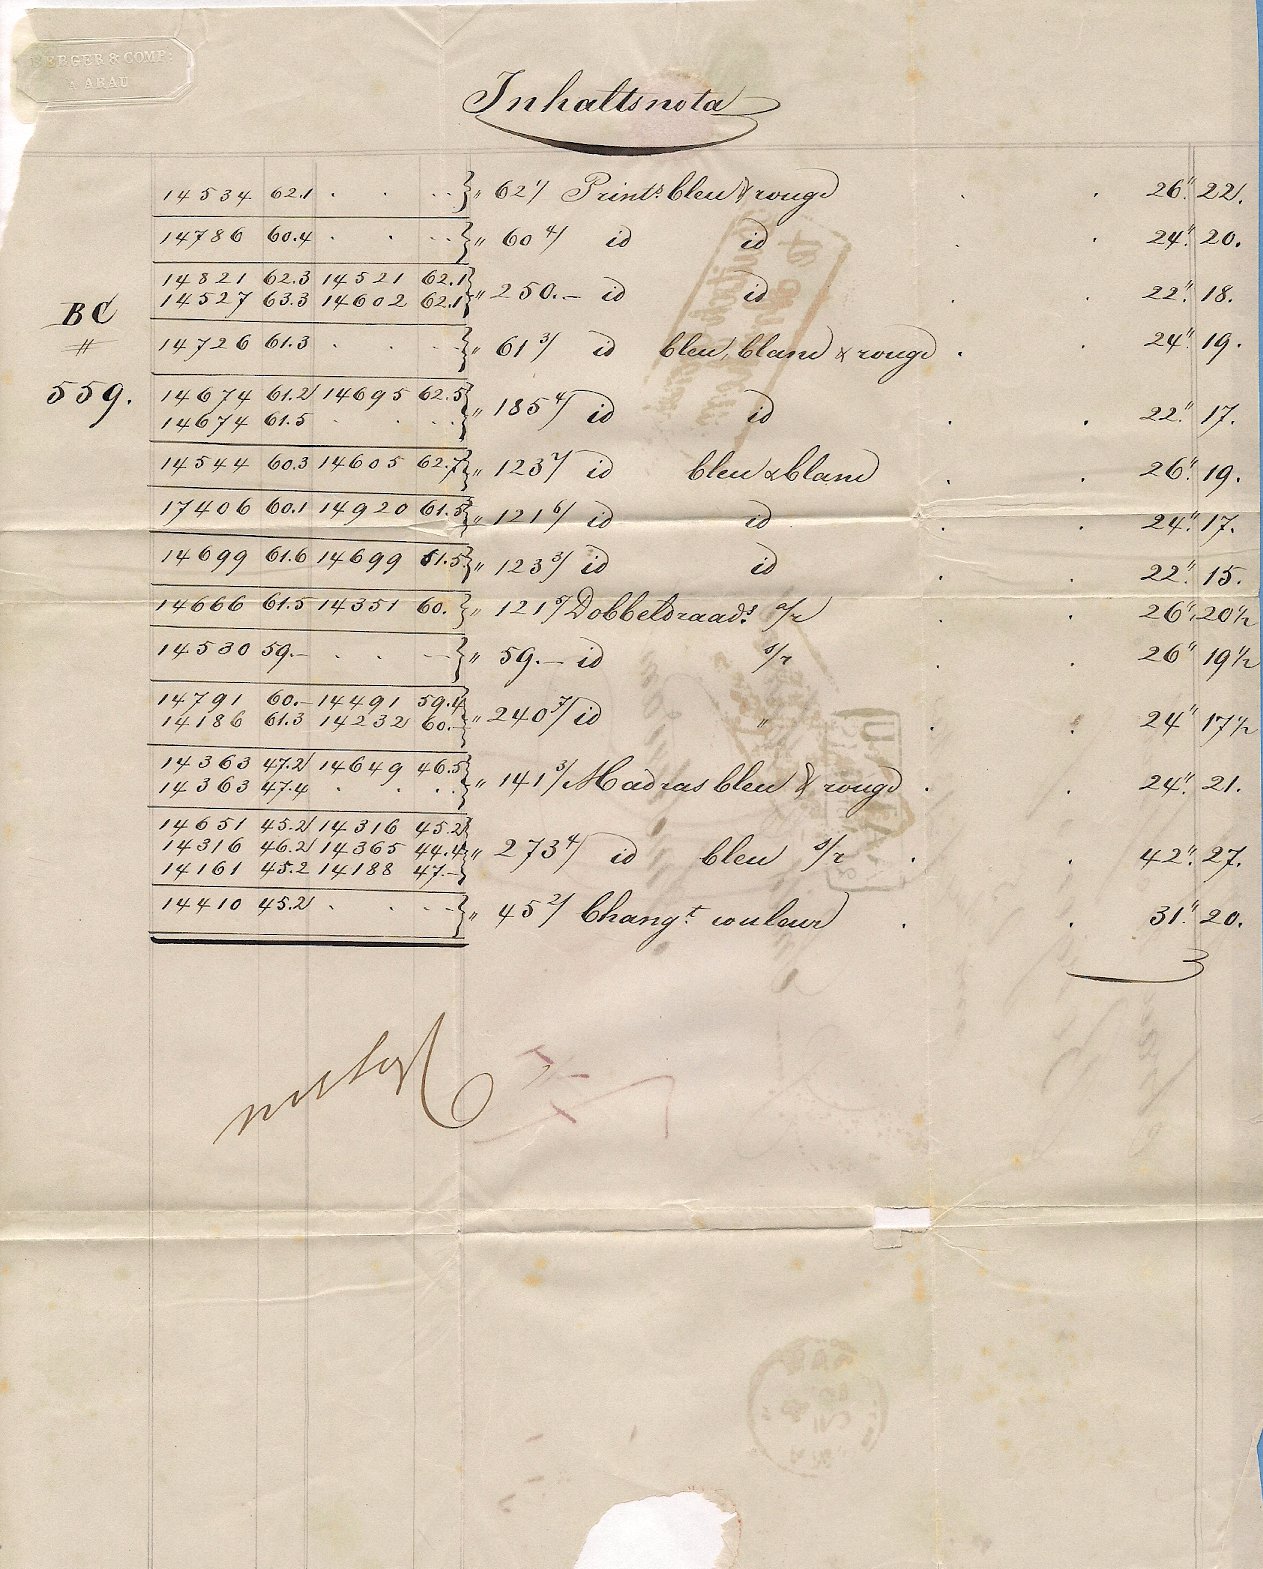 BERGER & COMP:
A ARAU
Inhaltsnota
14534 62.1 . . . . } " 62 1/ Prints. bleu & rouge . . 26." 22.
14786 60.4 . . . . } " 60 4/ id id . . 24." 20.
14821 62.3 14521 62.1
14527 63.3 14602 62.1 } " 250.— id id . . 22." 18.
BC
14726 61.3 . . . } " 61 3/ id bleu, blanc & rouge . . 24." 19.
559.
14674 61.2 14695 62.5
14674 61.5 . . . . } " 185 4/ id id . . 22." 17.
14544 60.3 14605 62.7 } " 123 2/ id bleu & blanc . . 26." 19.
17406 60.1 14920 61.5 } " 121 6/ id id . . 24." 17.
14699 61.6 14699 61.5 } " 123 3/ id id . . 22." 15.
14666 61.5 14351 60. } " 121 5/ Dobbeldraads. a/r . . 26." 20 1/2
14530 59.— . . — } " 59.— id s/r . . 26" 19 1/2
14791 60.— 14491 59.4
14186 61.3 14232 60.— } " 240 7/ id " . . 24" 17 1/2
14363 47.2 14649 46.5
14363 47.4 . . . . } " 141 3/ Madras bleu & rouge . . 24." 21.
14651 45.2 14316 45.2
14316 46.2 14365 44.4 } " 273 4/ id bleu s/r . . 42." 27.
14161 45.2 14188 47.—
14410 45.2 . . . — } " 45 2/ Changt. couleur . . 31." 20.